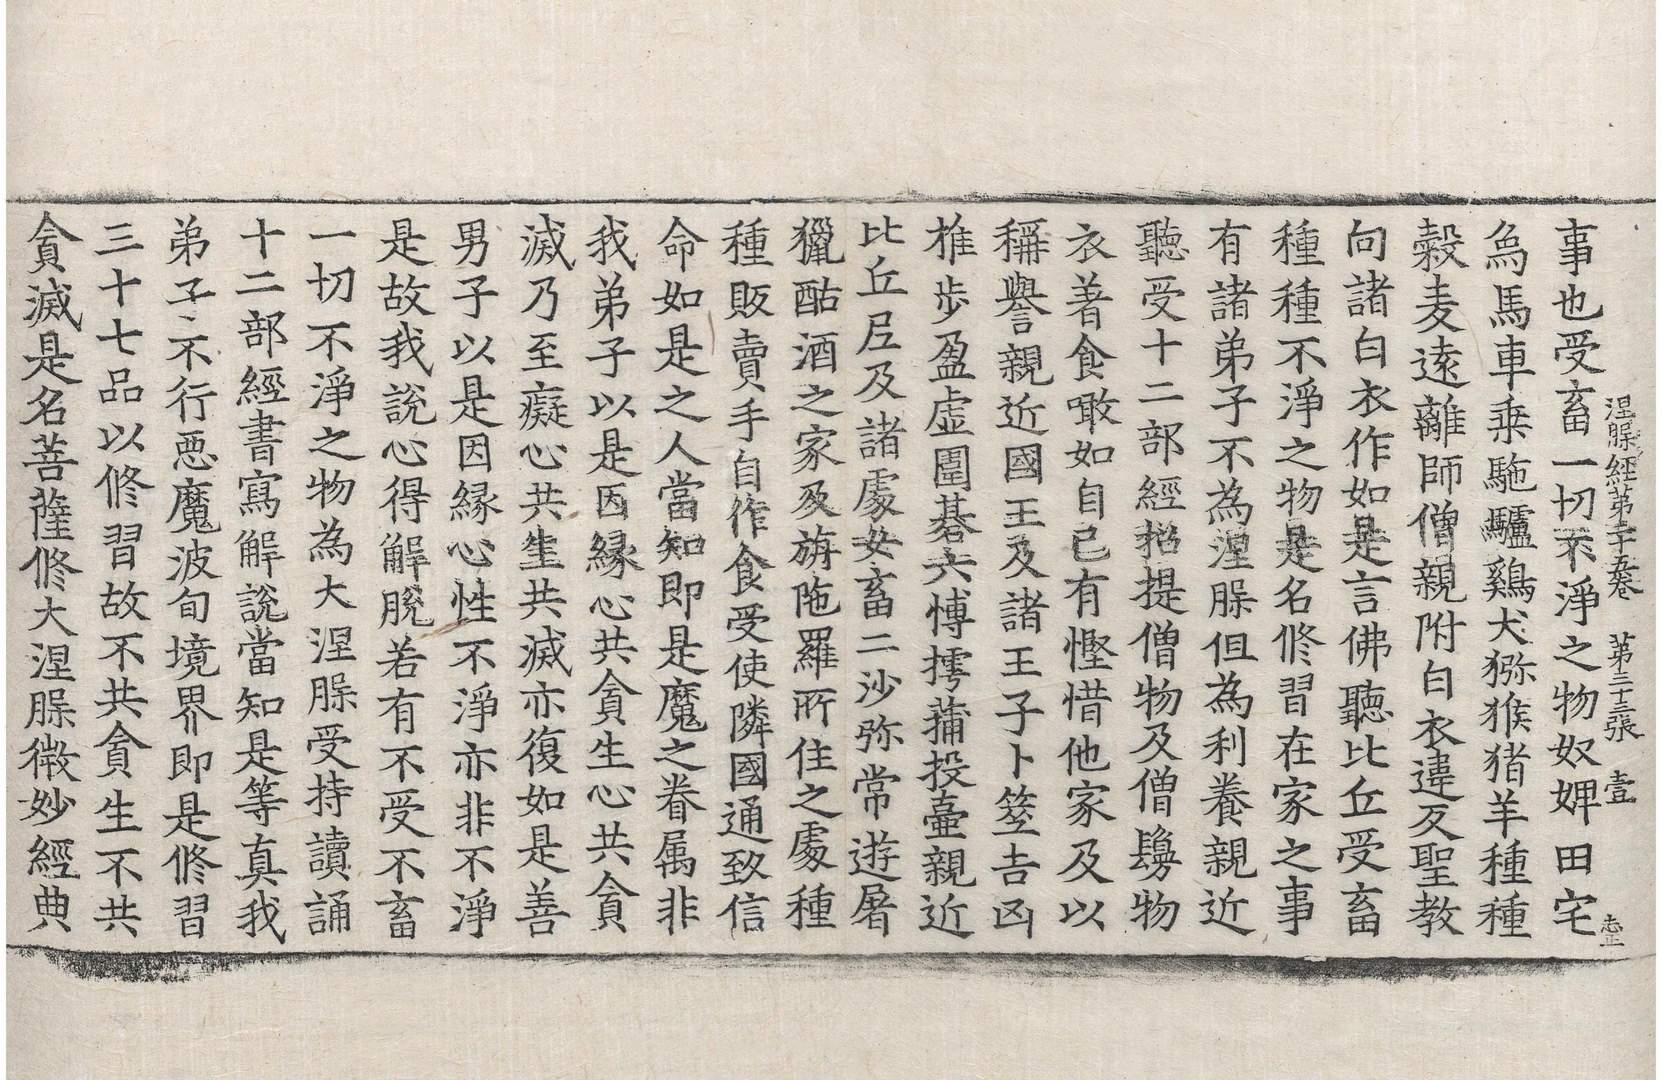 事也受畜一切不淨之物奴婢田宅
涅槃經第二十五卷　第三十三張　壹　志正
烏馬車乗馳驢鷄犬獼猴猪羊種種
穀麦遠離師僧親附白衣違反聖教
向諸白衣作如是言佛聽比丘受畜
種種不淨之物是名修習在家之事
有諸弟子不為涅槃但為利養親近
聽受十二部經招提僧物及僧鬘物
衣著食噉如自己有慳惜他家及以
稱譽親近國王及諸王子卜筮吉凶
推步盈虛圍碁六博摴蒲投壷親近
比丘尼及諸處女畜二沙弥常遊屠
獵酤酒之家及旃陁羅所住之處種
種販賣手自作食受使隣國通致信
命如是之人當知即是魔之眷属非
我弟子以是因縁心共貪生心共貪
滅乃至癡心共生共滅亦復如是善
男子以是因縁心性不淨亦非不淨
是故我說心得解脫若有不受不畜
一切不淨之物為大涅槃受持讀誦
十二部經書寫解說當知是等真我
弟子不行惡魔波旬境界即是修習
三十七品以修習故不共貪生不共
貪滅是名菩薩修大涅槃微妙經典